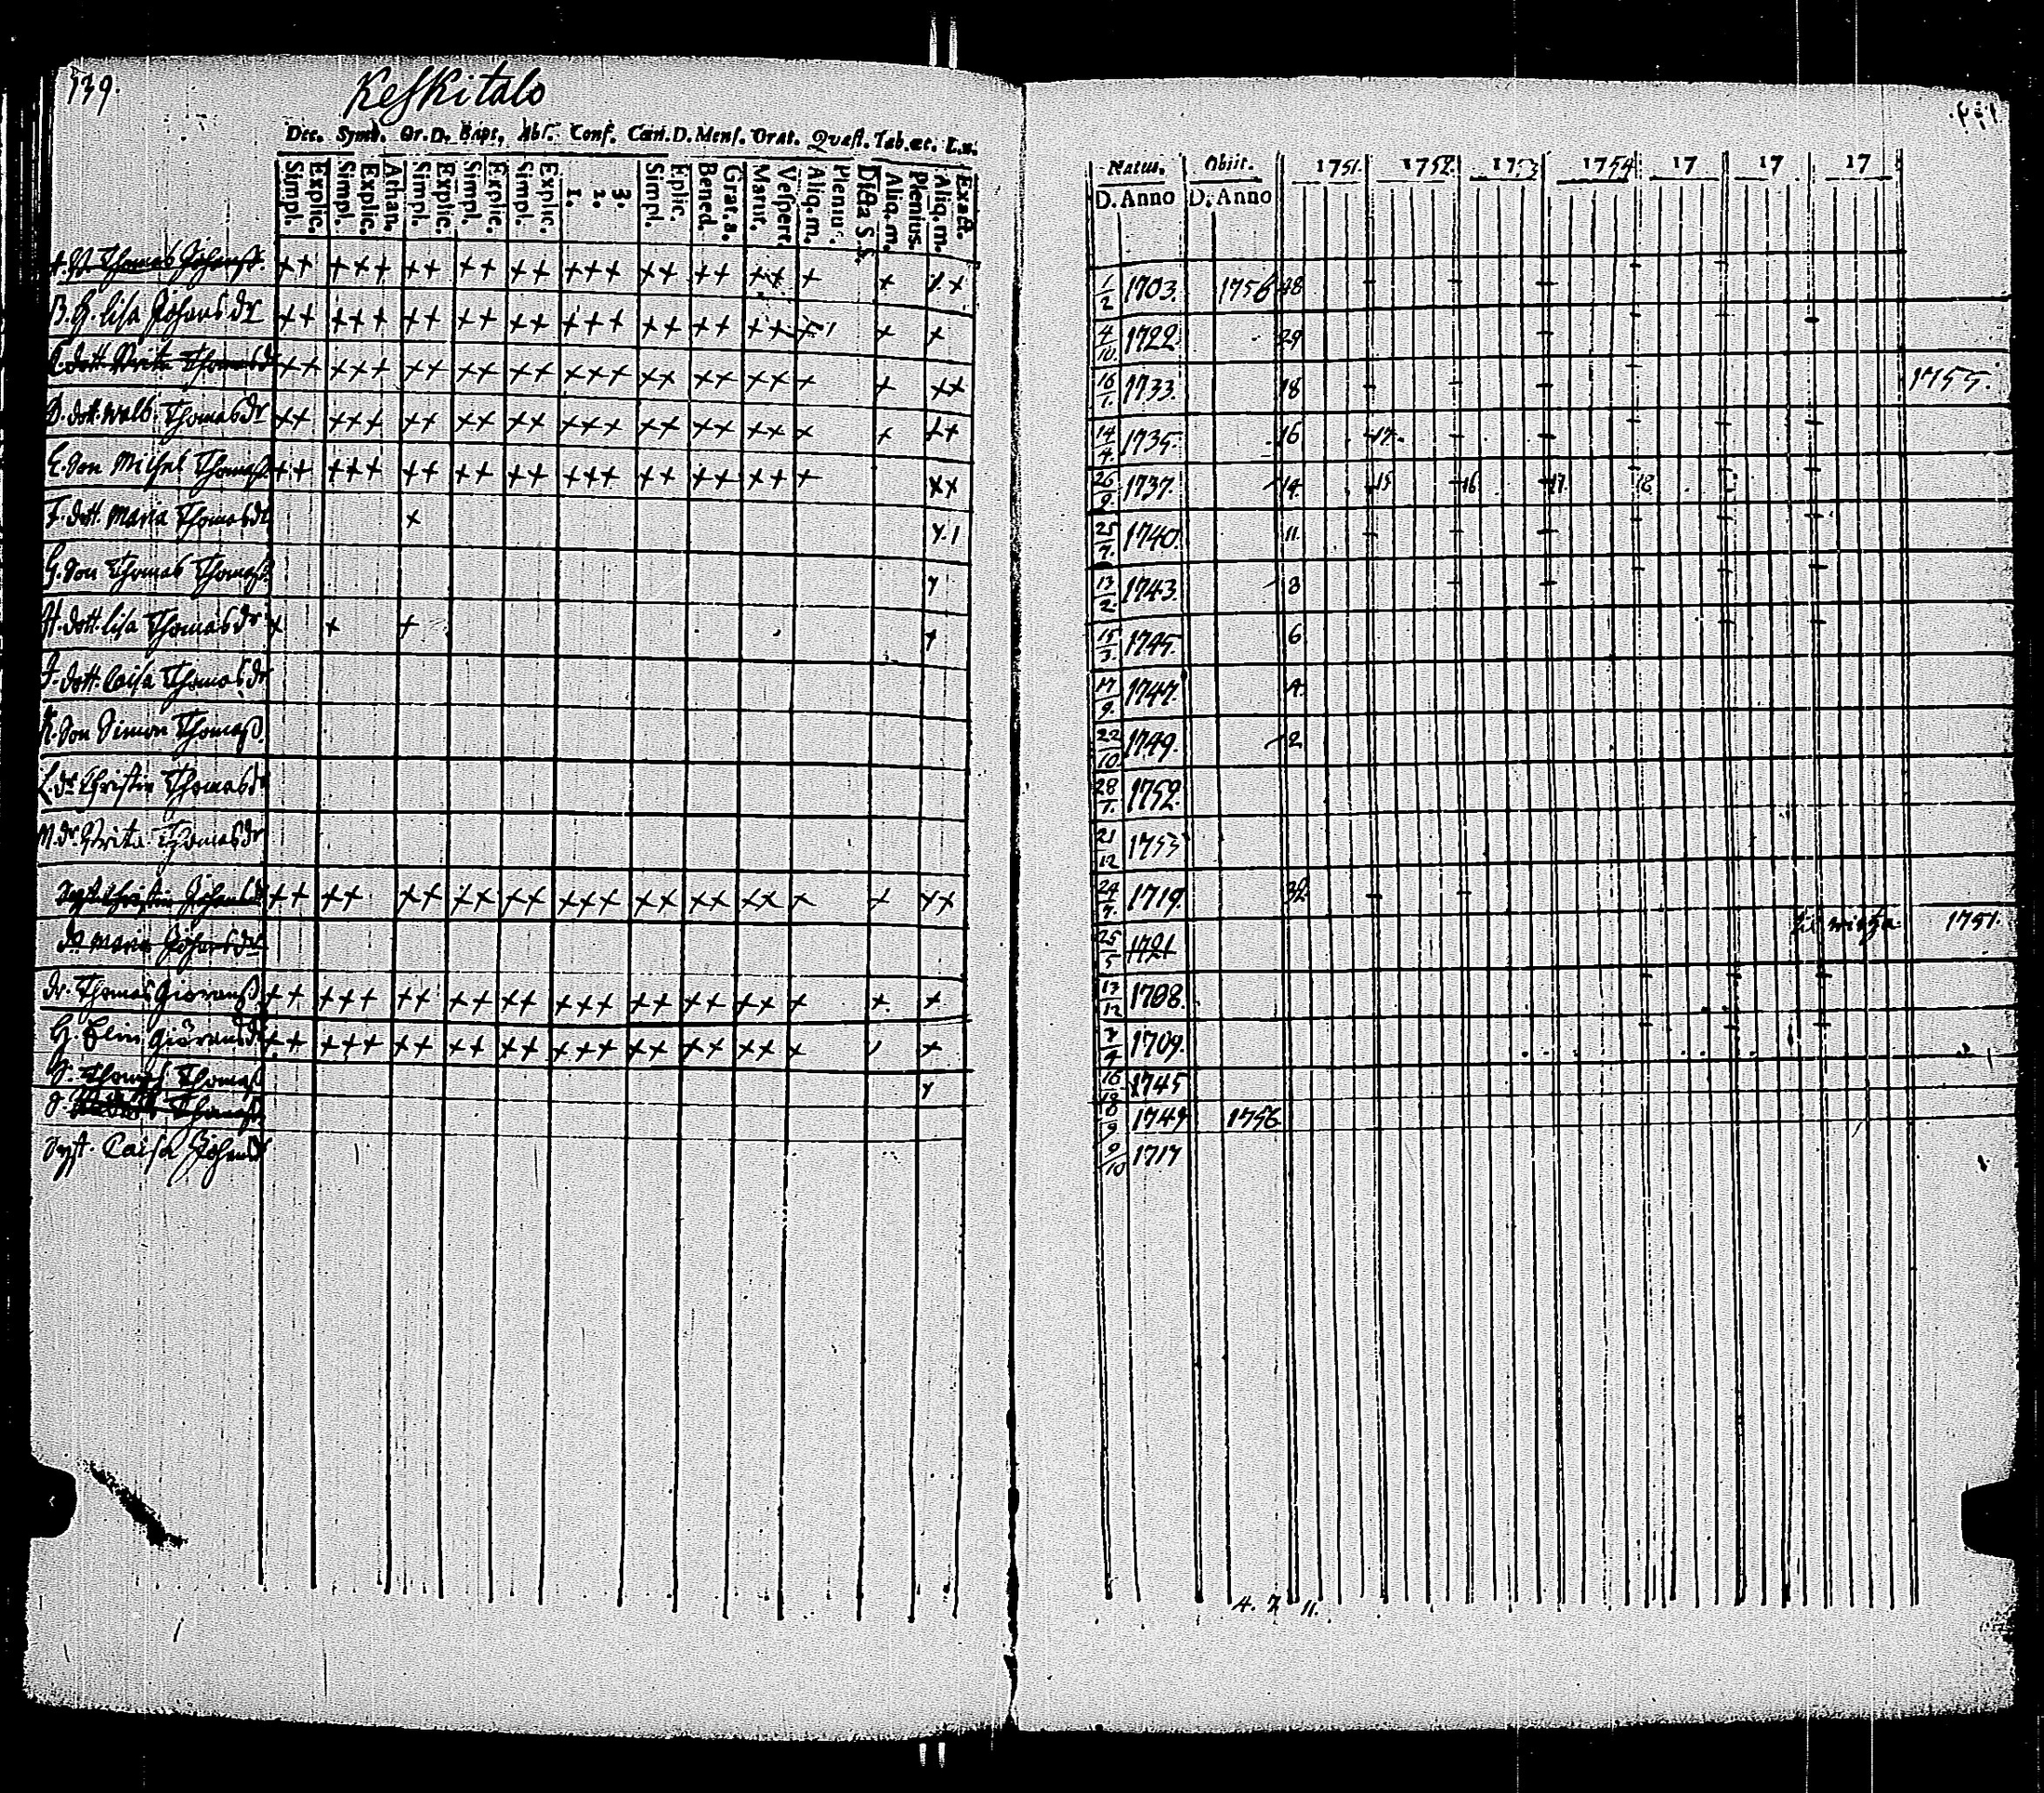 139.
Keskitalo
Dec. Symb. Or. D. Bapt. Abs. Conf. Cœn. D. Mens. Orat. Quæst. Tab. œt. L.n.
Simpl. Explic. Simpl. Explic. Athan. Simpl. Explic. Simpl. Explic. Simpl. Explic. 1. 2. 3. Simpl. Eplic. Bened. Grat. a. Matut. Vespert. Aliq. m. Pleniur. Dicta S. Aliq. m. Plenius. Aliq. m. Exact.
Natus. Obiit. 1751. 1752. 1753 1754 17 17 17
D. Anno D. Anno
Thomas Johanss. ++ +++ ++ ++ ++ +++ ++ ++ ++ + + ++ 1/2 1703. 1756 48
B. H. Lisa Johansdr ++ +++ ++ ++ ++ +++ ++ ++ ++ + + + 4/10 1722. 29
C. dott. Brita Thomasd ++ +++ ++ ++ ++ +++ ++ ++ ++ + + ++ 16/1. 1733. 18 1755.
D. dott. Walb. Thomasdr ++ +++ ++ ++ ++ +++ ++ ++ ++ + + ++ 14/4 1735. 16 17
E. Son Michel Thomass. ++ +++ ++ ++ ++ +++ ++ ++ ++ + ++ 26/9 1737. 14 15 16 17 18
F. dott. Maria Thomasdr + 25/7. 1740. 11
G. Son Thomas Thomass. 13/2 1743. 8
H. dott. Lisa Thomasdr + + + + 15/3. 1745. 6
I. dott. Caisa Thomasdr 17/9. 1747. 4
K. Son Simon Thomass. 22/10 1749. 2
L. dr Christin Thomasdr 28/1. 1752.
M. dr. Brita Thomasdr 21/12 1753
Syst. Christin Johansd ++ ++ ++ ++ ++ +++ ++ ++ ++ + + ++ 24/7. 1719. 32
do Maria Johansdr 25/5 1721 1751.
dr. Thomas Giöranss ++ +++ ++ ++ ++ +++ ++ ++ ++ + + + 13/12 1708.
H. Elin Giöransdr ++ +++ ++ ++ ++ +++ ++ ++ ++ + + 1709.
Thomass 1745
Thomass. 1749 1756
Syst. Caisa Johansdr 9/10 1717
4. 7. 11.